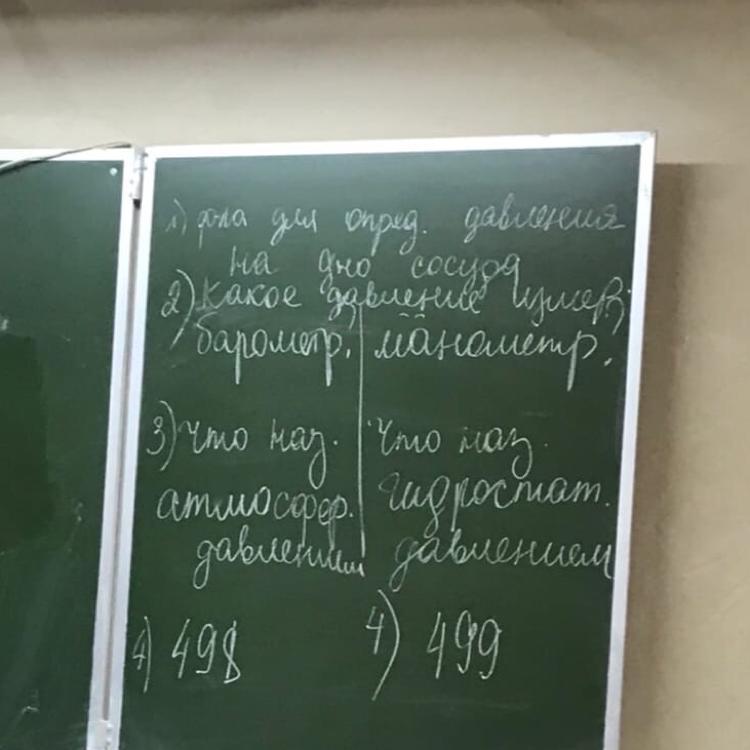 1) ф-ла для опред. давления
на дно сосуда
2) Какое давление измер.
барометр. манометр.
3) Что наз. Что наз.
атмосфер. гидростат.
давлением давлением
4) 498 4) 499